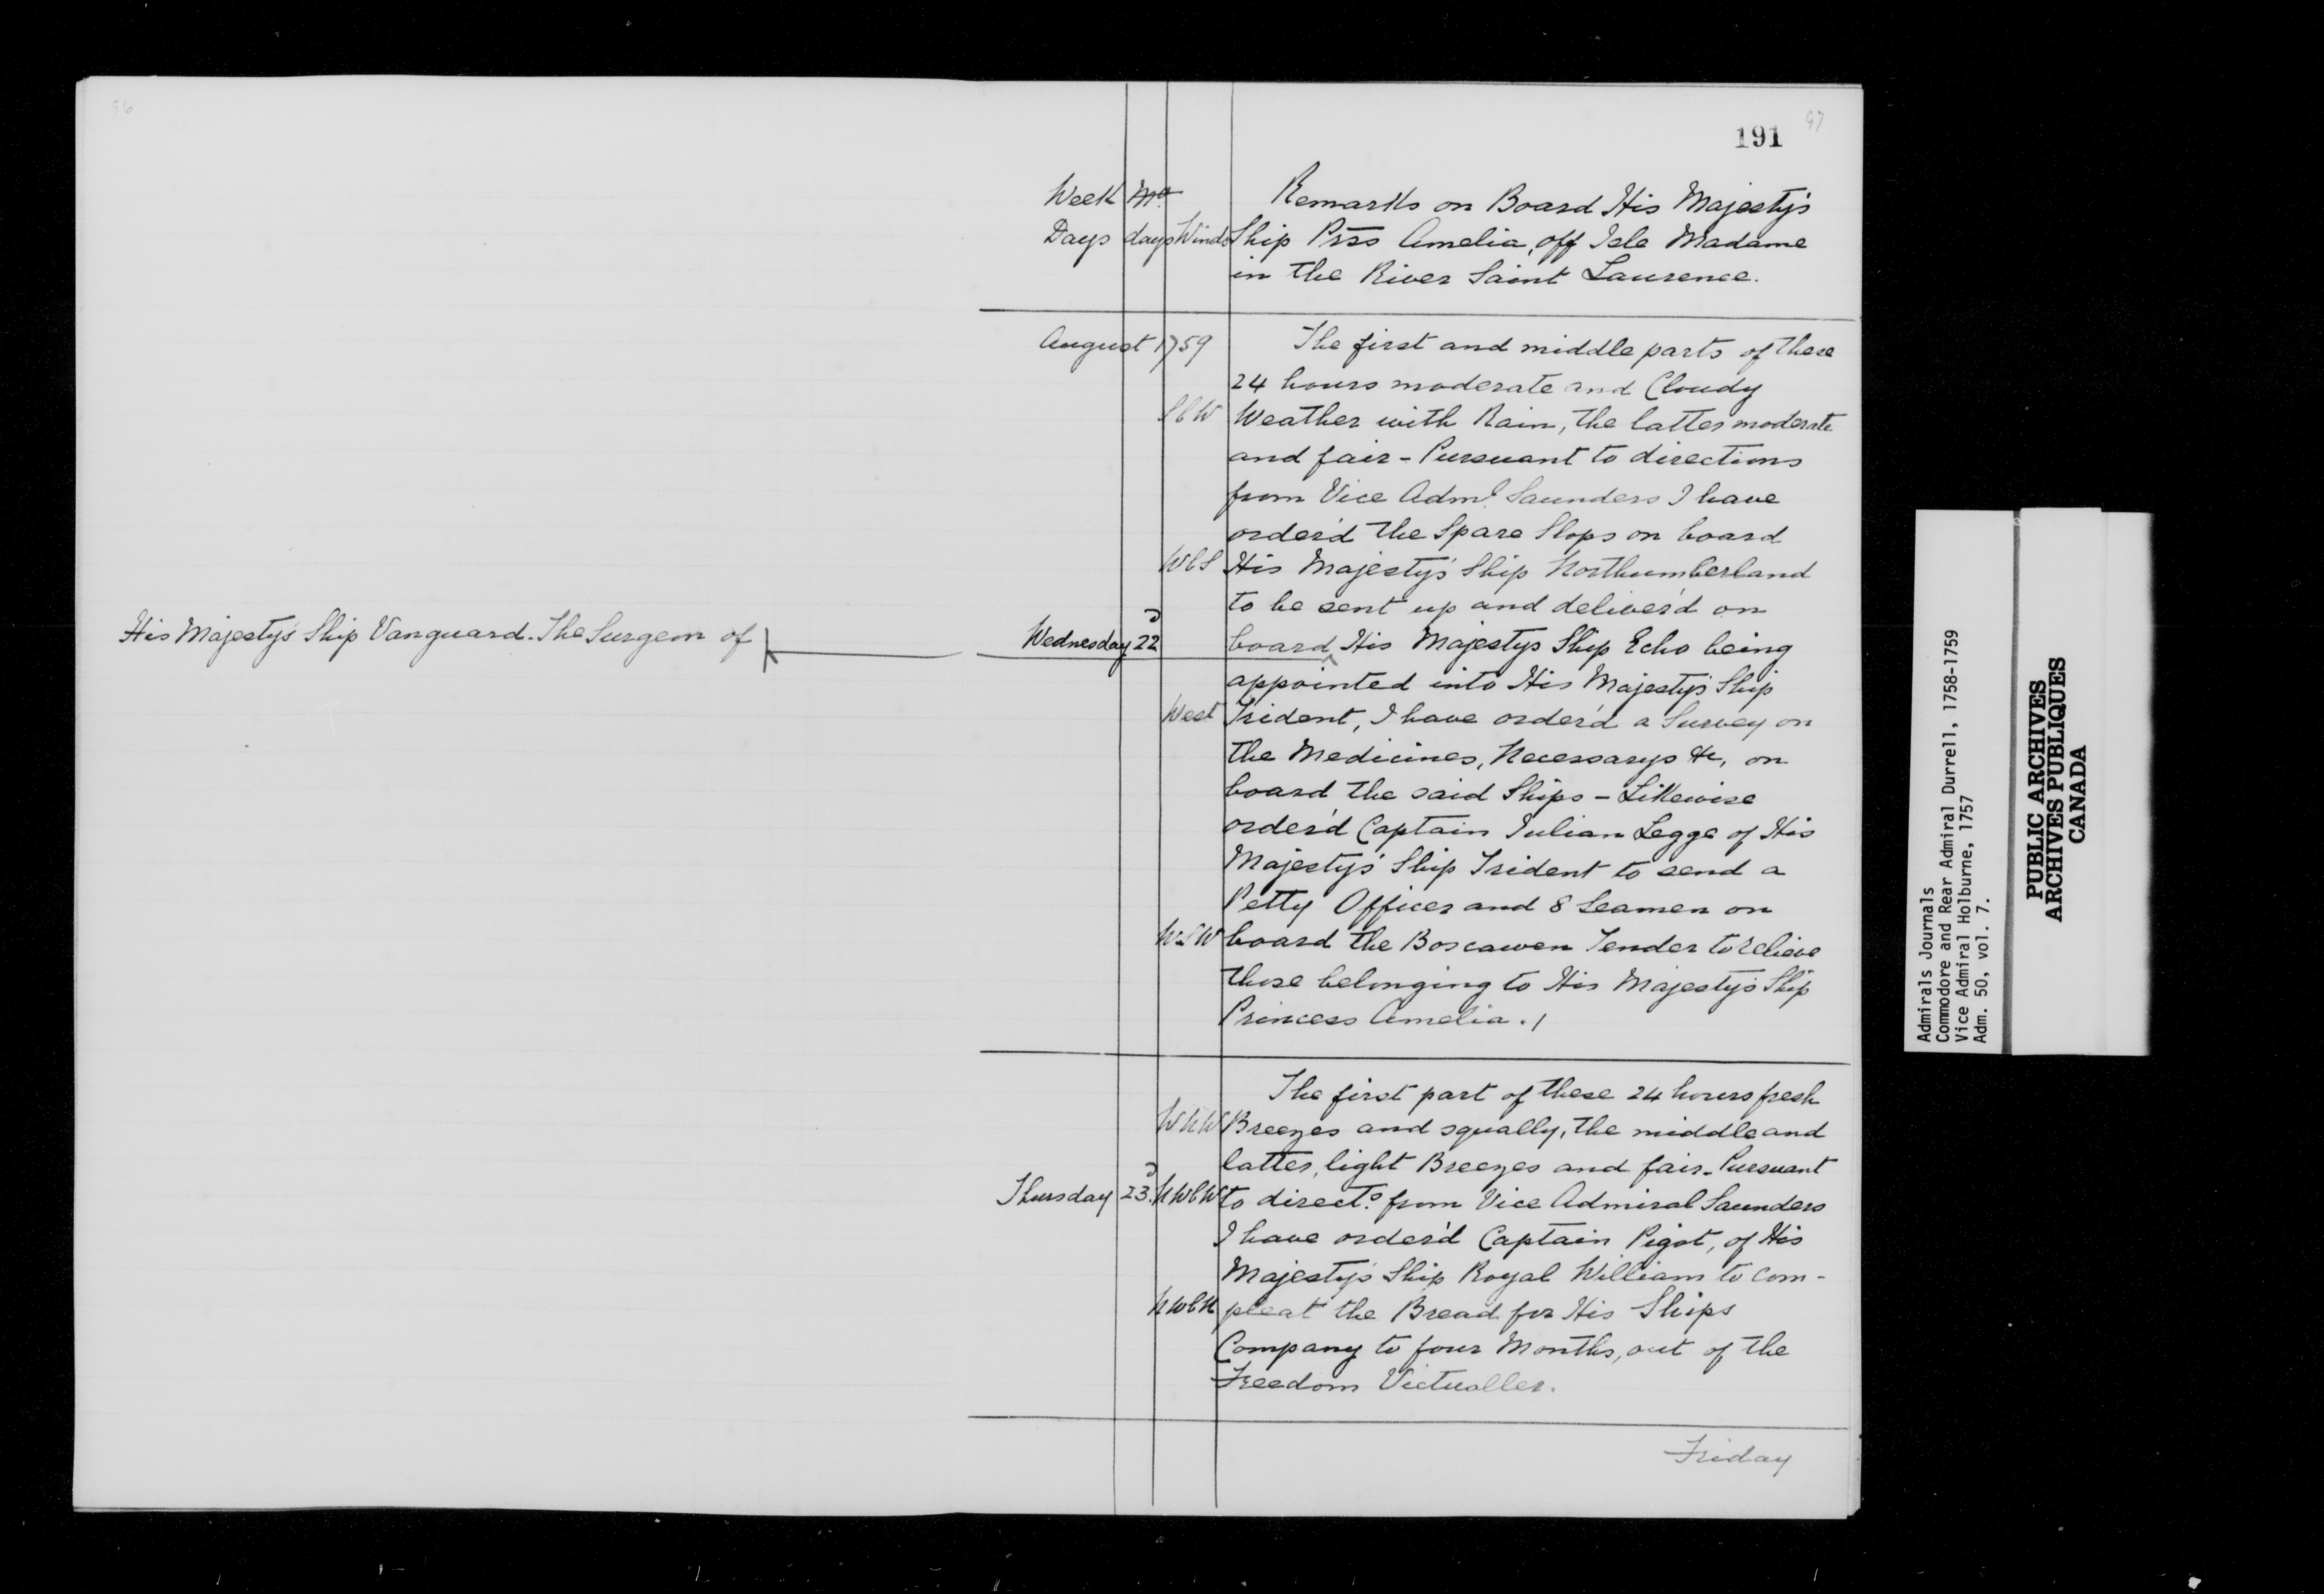 96
97
191
Week Mo. Remarks on Board His Majesty's
Days days Winds Ship Prss Amelia, off Isle Madame
in the River Saint Laurence.
August 1759 The first and middle parts of these
24 hours moderate and Cloudy
SbW Weather with Rain, the latter moderate
and fair - Pursuant to directions
from Vice Adml. Saunders I have
order'd the Spare Slops on board
WbS His Majesty's Ship Northumberland
to be sent up and deliver'd on
His Majesty's Ship Vanguard. The Surgeon of
Wednesday 22d board ‸ His Majestys Ship Echo being
appointed into His Majesty's Ship
West Trident, I have order'd a Survey on
the Medicines, Necessarys &c, on
board the said Ships - Likewise
order'd Captain Julian Legge of His
Majesty's Ship Trident to send a
Petty Officer and 8 Seamen on
WSW board the Boscawen Tender to relieve
those belonging to His Majesty's Ship
Princess Amelia ./
The first part of these 24 hours fresh
WNW Breezes and squally, the middle and
latter, light Breezes and fair - Pursuant
Thursday 23d. NWbW to directs. from Vice Admiral Saunders
I have order'd Captain Pigot, of His
Majesty's Ship Royal William to com-
NWbN pleat the Bread for His Ships
Company to four Months, out of the
Freedom Victualler.
Friday
Admirals Journals
Commodore and Rear Admiral Durrell, 1758-1759
Vice Admiral Holburne, 1757
Adm. 50, vol. 7.
PUBLIC ARCHIVES
ARCHIVES PUBLIQUES
CANADA